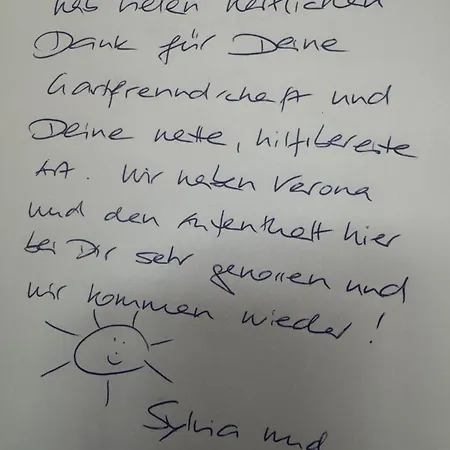 vielen herzlichen
Dank für Deine
Gastfreundschaft und
Deine nette, hilfsbereite
Art. Wir haben Verona
und den Aufenthalt hier
bei Dir sehr genossen und
wir kommen wieder!
Sylvia und